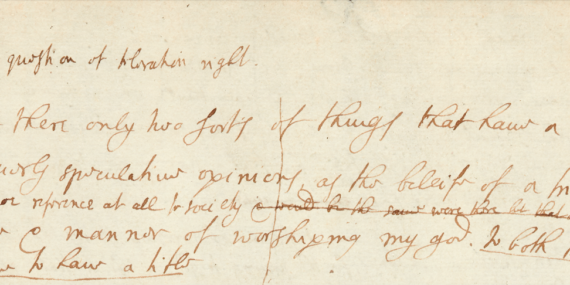 question of toleration right
there only two sorts of things that have a
speculative opinions, as the beleife of a
reference at all to society
manner of worshiping my god. to both
to have a title